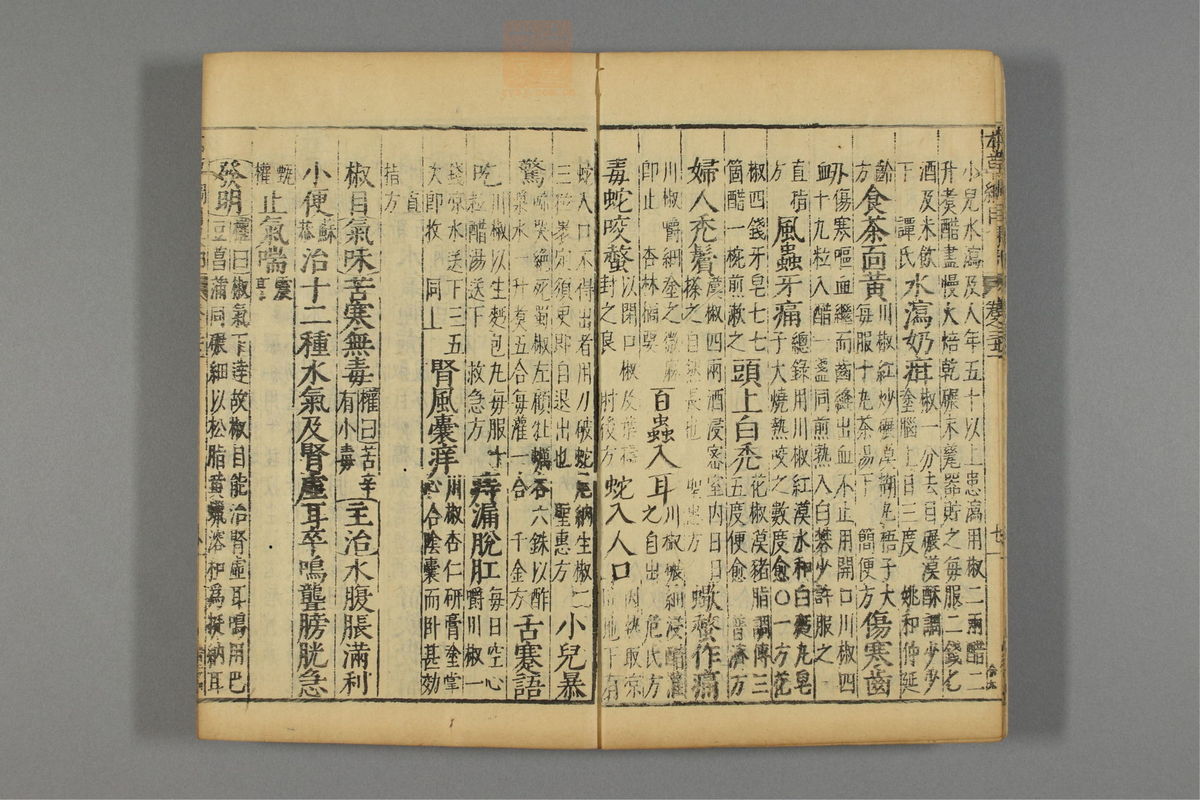 小兒水瀉及人年五十以上患瀉用椒二兩醋二
升煑醋盡慢火焙乾碾末瓷器貯之每服二錢匕
酒及米飲下 譚氏 水瀉奶疳 椒一分去目碾末酥調少少塗腦上日三度 姚和仲延
齡方 食茶面黃 川椒紅炒碾末糊丸梧子大每服十丸茶湯下 簡便方 傷寒齒
衄 傷寒嘔血繼而齒縫出血不止用開口川椒四十九粒入醋一盞同煎熟入白礬少許服之
直指方 風蟲牙痛 總錄用川椒紅末水和白麪丸皂子大燒熱咬之數度愈○一方花
椒四錢牙皂七七箇醋一椀煎漱之 頭上白禿 花椒末猪脂調傅三五度便愈 普濟方
婦人禿鬢 漢椒四兩酒浸密室內日日搽之自然長也 聖惠方 蠍螫作痛
川椒嚼細塗之微麻即止 杏林摘要 百蟲入耳 川椒碾細浸醋灌之自出 危氏方
毒蛇咬螫 以閉口椒及葉擣封之良 肘後方 蛇入人口 因熱取凉臥地下有
蛇入口不得出者用刀破蛇尾納生椒二三粒裹定須臾即自退出也 聖惠方 小兒暴
驚 啼哭絕死蜀椒左顧牡蠣各六銖以酢漿水一升煑五合每灌一合 千金方 舌蹇語
吃 川椒以生麪包丸每服十粒醋湯送下 救急方 痔漏脫肛 每日空心嚼川椒一
錢凉水送下三五次即收 同上 腎風囊痒 川椒杏仁研膏塗掌心合陰囊而臥甚効
直指方
椒目 氣味 苦寒無毒 權曰苦辛有小毒 主治 水腹脹滿利
小便 蘇恭 治十二種水氣及腎虛耳卒鳴聾膀胱急
甄權 止氣喘 震亨
發明 權曰椒氣下達故椒目能治腎虛耳鳴用巴豆菖蒲同碾細以松脂黃蠟溶和爲挺納耳